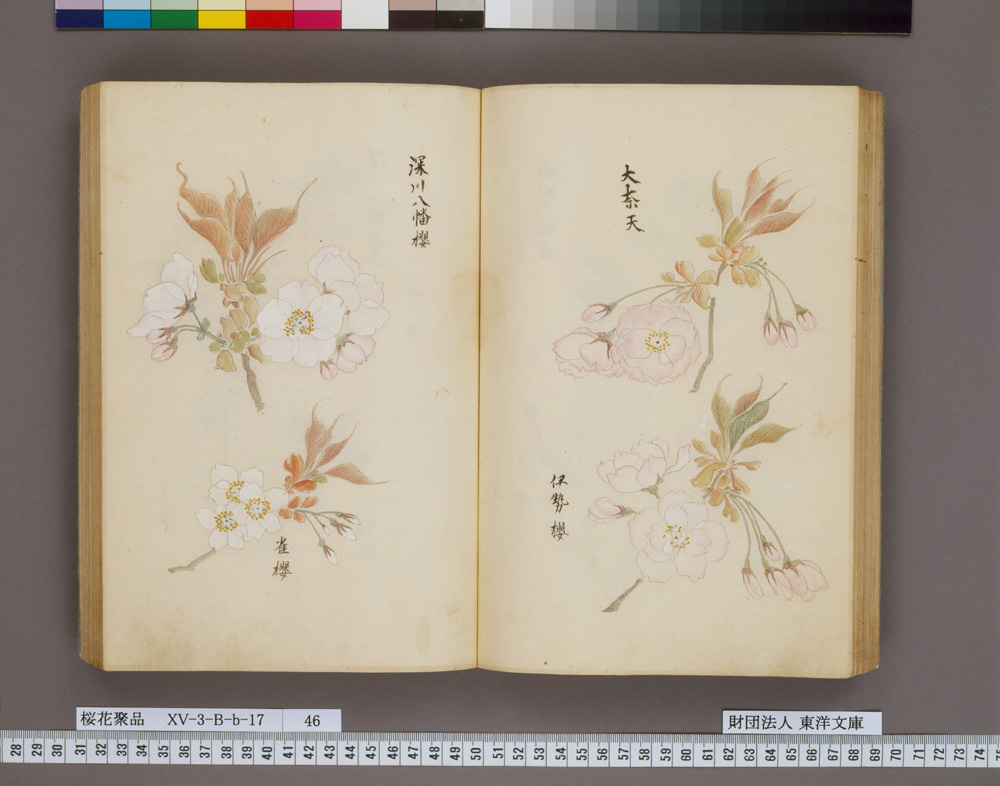 大奈天
伊勢櫻
深川八幡櫻
雀櫻
桜花聚品 XV-3-B-b-17 46
財団法人 東洋文庫
28 29 30 31 32 33 34 35 36 37 38 39 40 41 42 43 44 45 46 47 48 49 50 51 52 53 54 55 56 57 58 59 60 61 62 63 64 65 66 67 68 69 70 71 72 73 74